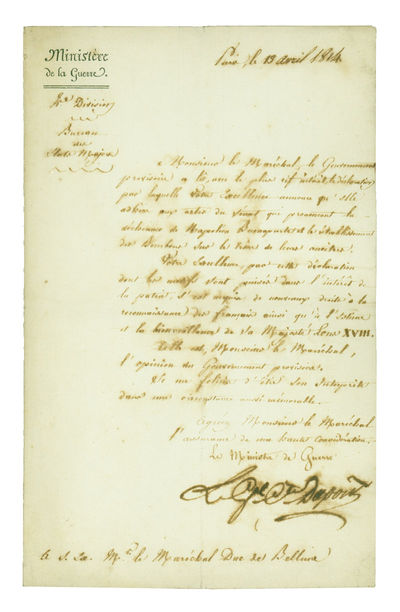 Ministère
de la Guerre.
Division
Bureau
des
États Majors
Paris, le 13 avril 1814
à Monsieur le Maréchal, le Gouvernement
provisoire a lu, avec le plus vif intérêt, la déclaration
par laquelle Votre Excellence annonce qu'elle
adhère aux actes du Sénat qui prononcent la
déchéance de Napoléon Buonaparte et le rétablissement
des Bourbons sur le trône de leurs ancêtres.
Votre Excellence par cette déclaration
dont les motifs sont puisés dans l'intérêt de
la patrie, s'est acquis de nouveaux droits à la
reconnaissance des français ainsi qu'à l'estime
et la bienveillance de Sa Majesté Louis XVIII.
Telle est, Monsieur le Maréchal,
l'opinion du Gouvernement provisoire.
Je me félicite d'être son interprète
dans une circonstance aussi mémorable.
Agréez Monsieur le Maréchal
l'assurance de ma haute Considération.
Le Ministre de Guerre
Le Gal Cte Dupont
A S. Ex. Mr. le Maréchal Duc de Bellune